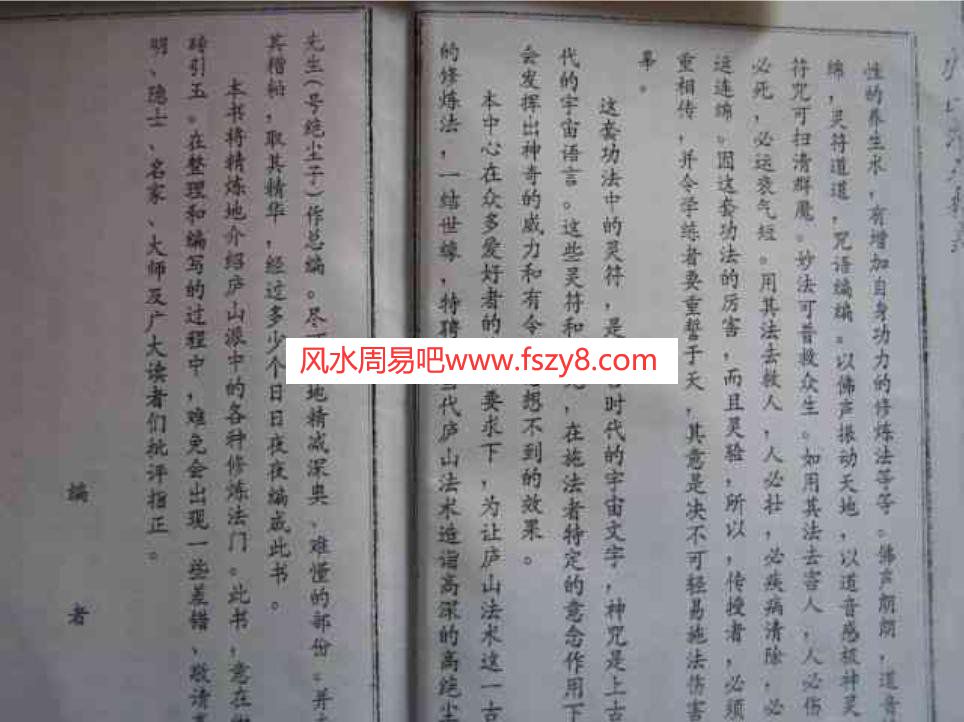 性的养生术，有增加自身功力的修炼法等等。佛声朗朗，道音
绵，灵符道道，咒语编编。以佛声振动天地，以道音感极神灵
符咒可扫清群魔。妙法可普救众生。如用其法去害人，人必伤
必死，必运衰气短。用其法去救人，人必壮，必疾病清除，必
运连绵。因这套功法的厉害，而且灵验，所以，传授者，必须
重相传，并令学练者要重誓于天，其意是决不可轻易施法伤害
辜。
这套功法中的灵符，是 时代的宇宙文字，神咒是上古
代的宇宙语言。这些灵符和 ，在施法者特定的意念作用下
会发挥出神奇的威力和有令 想不到的效果。
本中心在众多爱好者的 要求下，为让庐山法术这一古
的修炼法，一结世缘，特聘 代庐山法术造诣高深的高绝尘
先生（号绝尘子）作总编。尽 地精减深奥、难懂的部份。并
其糟粕，取其精华，经过多少个日日夜夜编成此书。
本书将精炼地介绍庐山派中的各种修炼法门。此书，意在
砖引玉。在整理和编写的过程中，难免会出现一些差错、敬请
明、隐士、名家、大师及广大读者们批评指正。
编 者
风水周易吧www.fszy8.com